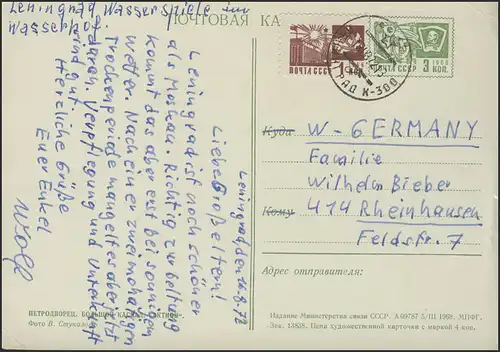 Leningrad Wasserspiele im
Wasserhof.
ПОЧТОВАЯ КА
Leningrad, den 26.8.72
Liebe Großeltern!
Leningrad ist noch schöner
als Moskau. Richtig zur Geltung
kommt das aber erst bei sonnigem
Wetter. Nach einer zweimonatigen
Trockenperiode mangelt es aber jetzt
daran. Verpflegung und Unterkunft
sind gut.
Herzliche Grüße
Euer Enkel
Wolf
ПОЧТА СССР
1 коп.
3 коп.
К-300
Куда
W-GERMANY
Familie
Wilhelm Bieber
Кому
414 Rheinhausen
Feldstr. 7
Адрес отправителя:
ПЕТРОДВОРЕЦ. БОЛЬШОЙ КАСКАД.
Фото В. Стукалова
Издание Министерства связи СССР. А 09787 5/III 1968. МПФГ.
Зак. 13838. Цена художественной карточки с маркой 4 коп.